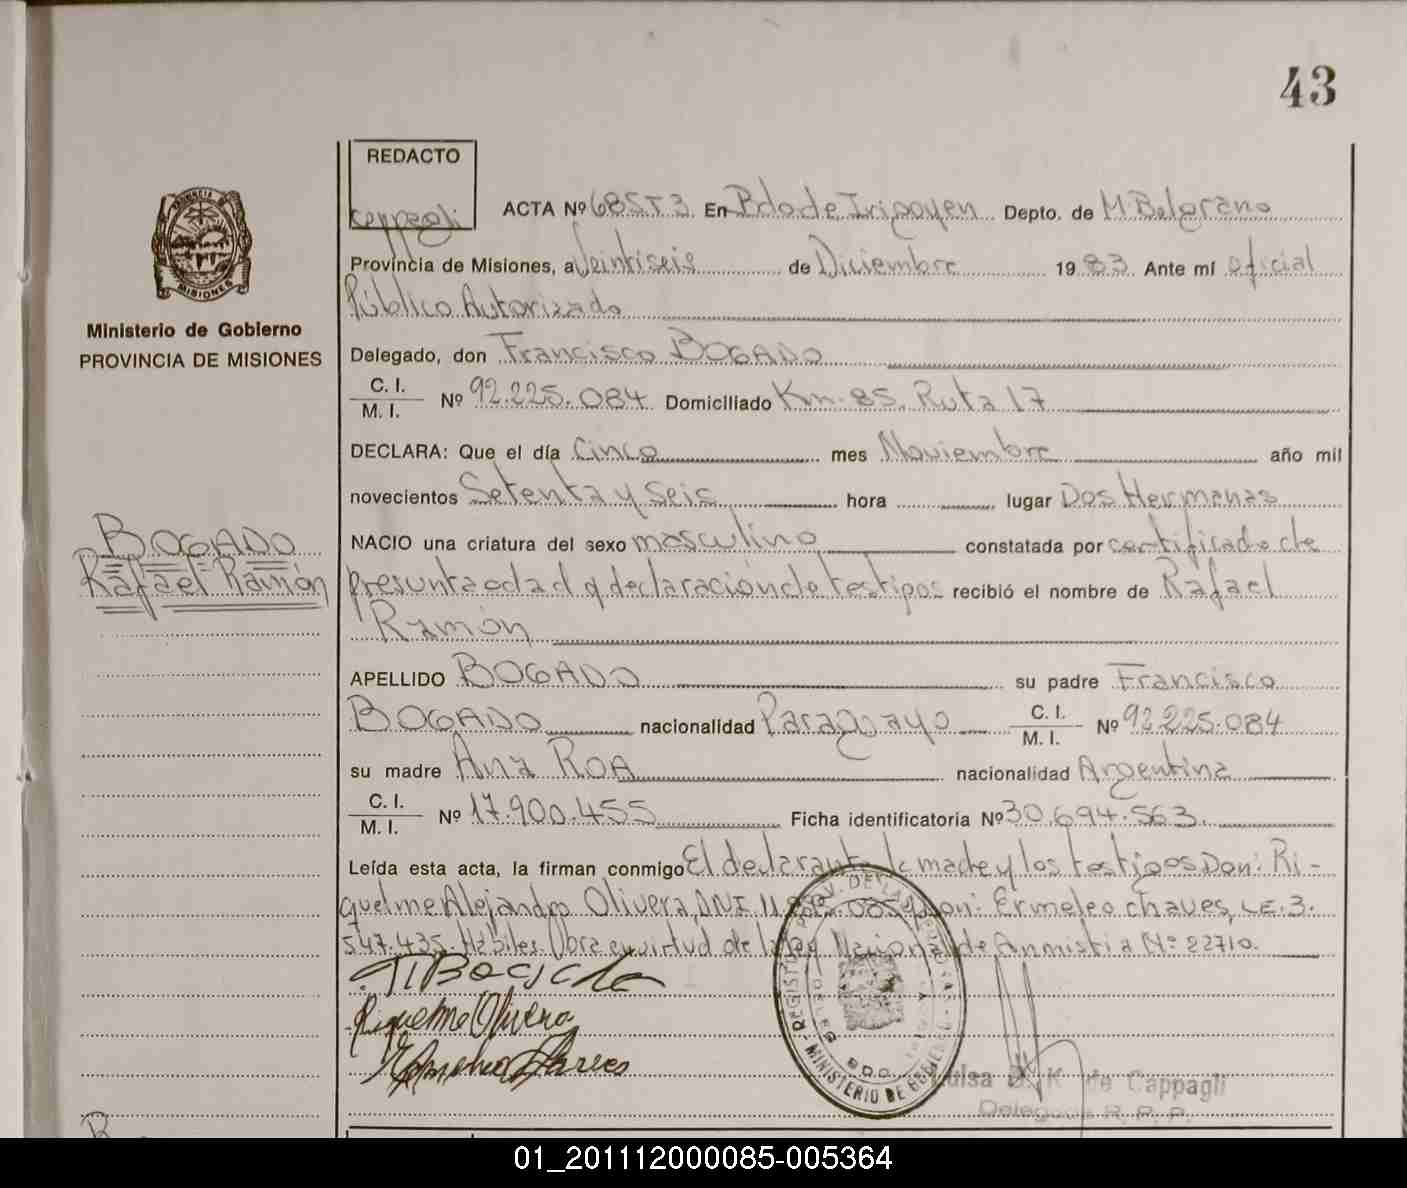 43
REDACTO
Cappagli
ACTA Nº 685 T 3 En Bdo de Irigoyen Depto. de M Belgrano
PROVINCIA
MISIONES
Provincia de Misiones, a Veintiseis de Diciembre 19 83 Ante mí oficial
Público Autorizado
Ministerio de Gobierno
PROVINCIA DE MISIONES
Delegado, don Francisco BOGADO
C. I.
M. I. Nº 92.225.084 Domiciliado Km. 85. Ruta 17
DECLARA: Que el día Cinco mes Noviembre año mil
novecientos Setenta y Seis hora lugar Dos Hermanas
BOGADO
Rafael Ramón
NACIO una criatura del sexo masculino constatada por certificado de
presunta edad y declaración de testigos recibió el nombre de Rafael
Ramón
APELLIDO BOGADO su padre Francisco
BOGADO nacionalidad Paraguayo C. I. M. I. Nº 92.225.084
su madre Ana ROA nacionalidad Argentina
C. I.
M. I. Nº 17.900.455 Ficha identificatoria Nº 30.694.563.
Leída esta acta, la firman conmigo El declarante la madre y los testigos Don: Ri-
quelme Alejandro Olivera, DNI 11. Don: Ermeleo chaves, LE. 3.
547.435. Hábiles. Obra en virtud de la Ley Nacional de Anmistia Nº 22710.
Riquelme Olivera
REGISTRO PROV. DE LAS PERSONAS
MINISTERIO DE GOBIERNO
BDO.
Luisa K de Cappagli
Delegada R. P. P.
01_201112000085-005364